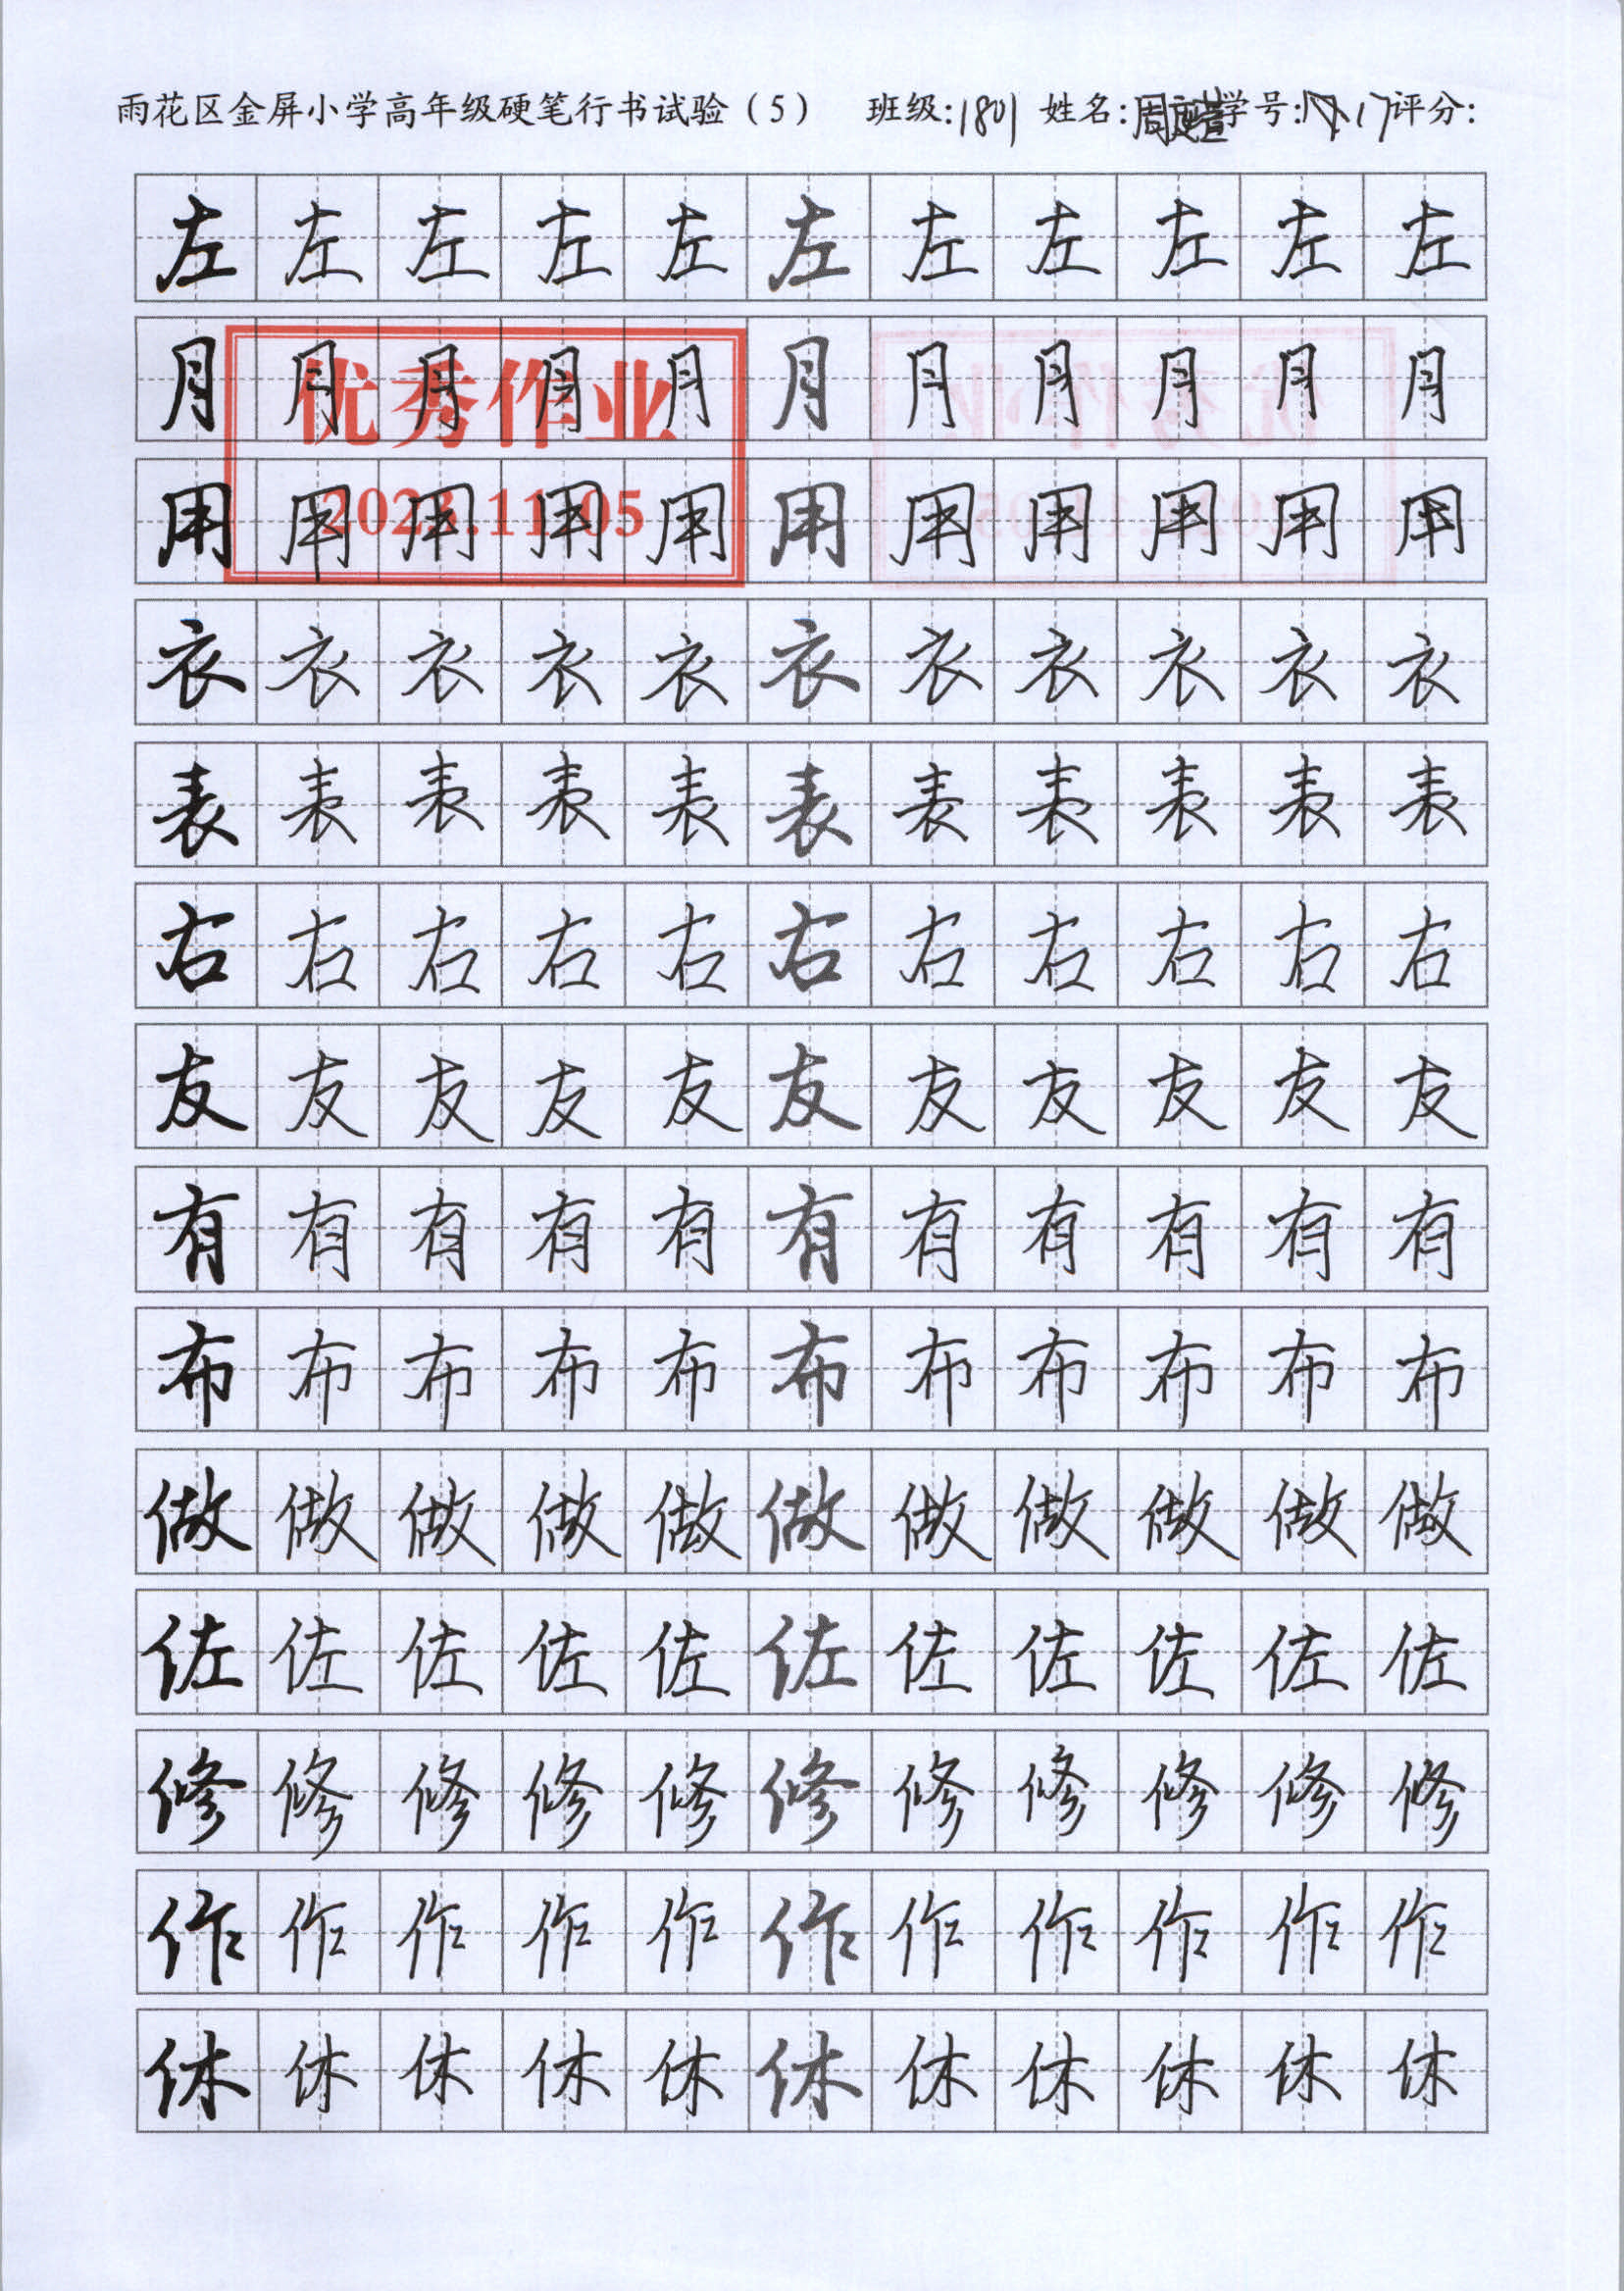 雨花区金屏小学高年级硬笔行书试验（5） 班级:1801 姓名:周 学号:17 评分:
左左左左左左左左左左左
月月月月月月月月月月月
优秀作业
用用用用用用用用用用用
2023.11.05
衣衣衣衣衣衣衣衣衣衣衣
表表表表表表表表表表表
右右右右右右右右右右右
友友友友友友友友友友友
有有有有有有有有有有有
布布布布布布布布布布布
做做做做做做做做做做做
佐佐佐佐佐佐佐佐佐佐佐
修修修修修修修修修修修
作作作作作作作作作作作
休休休休休休休休休休休